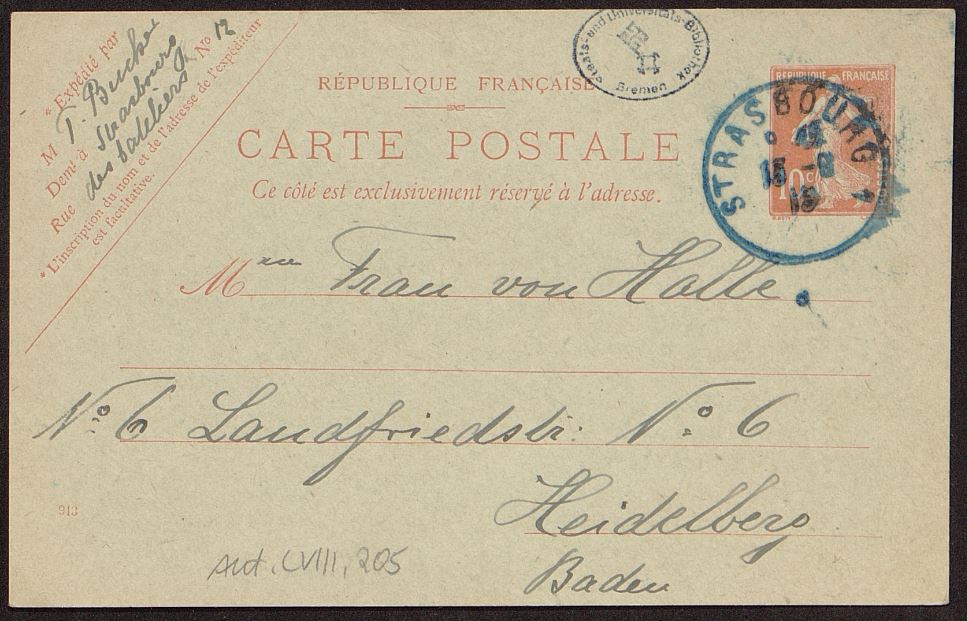 * Expédié par
M T. Bucher
Dem.t à Strasbourg
Rue des Bateliers No 12
* L'inscription du nom et de l'adresse de l'expéditeur
est facultative.
Staats- und Universitäts-Bibliothek
Bremen
RÉPUBLIQUE FRANÇAISE
CARTE POSTALE
Ce côté est exclusivement réservé à l'adresse.
REPUBLIQUE FRANÇAISE
10 c
STRASBOURG 1
15 - 8
19
Mme Frau von Halle.
No. 6 Landfriedstr: No. 6
Heidelberg
Baden
913
Aut. LVIII, 205